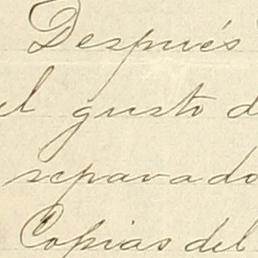 Después
el gusto d
separado
Copias del